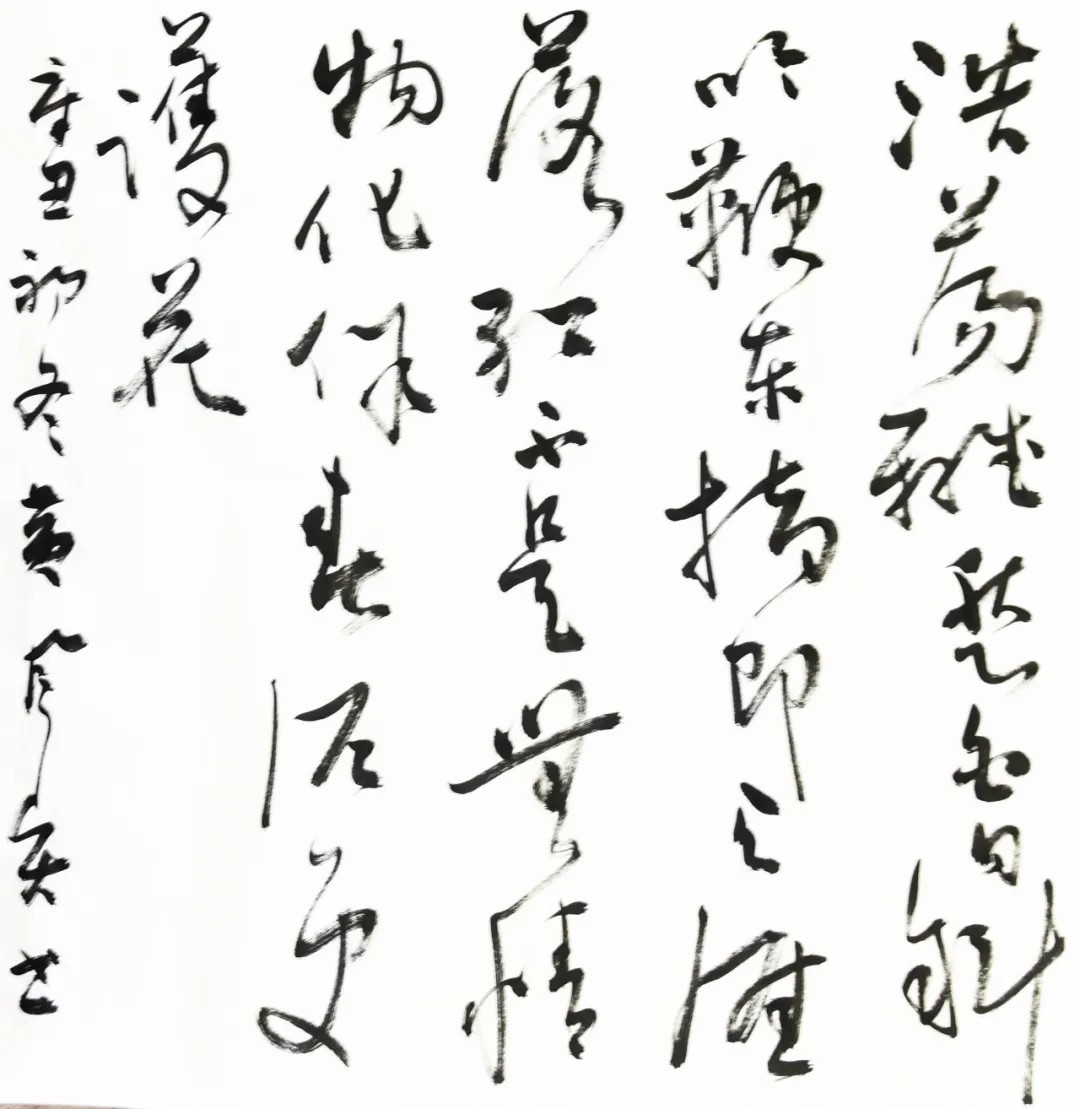 浩蕩離愁白日斜
吟鞭东指即天涯
落紅不是無情
物化作春泥更
護花
辛丑初冬黄书